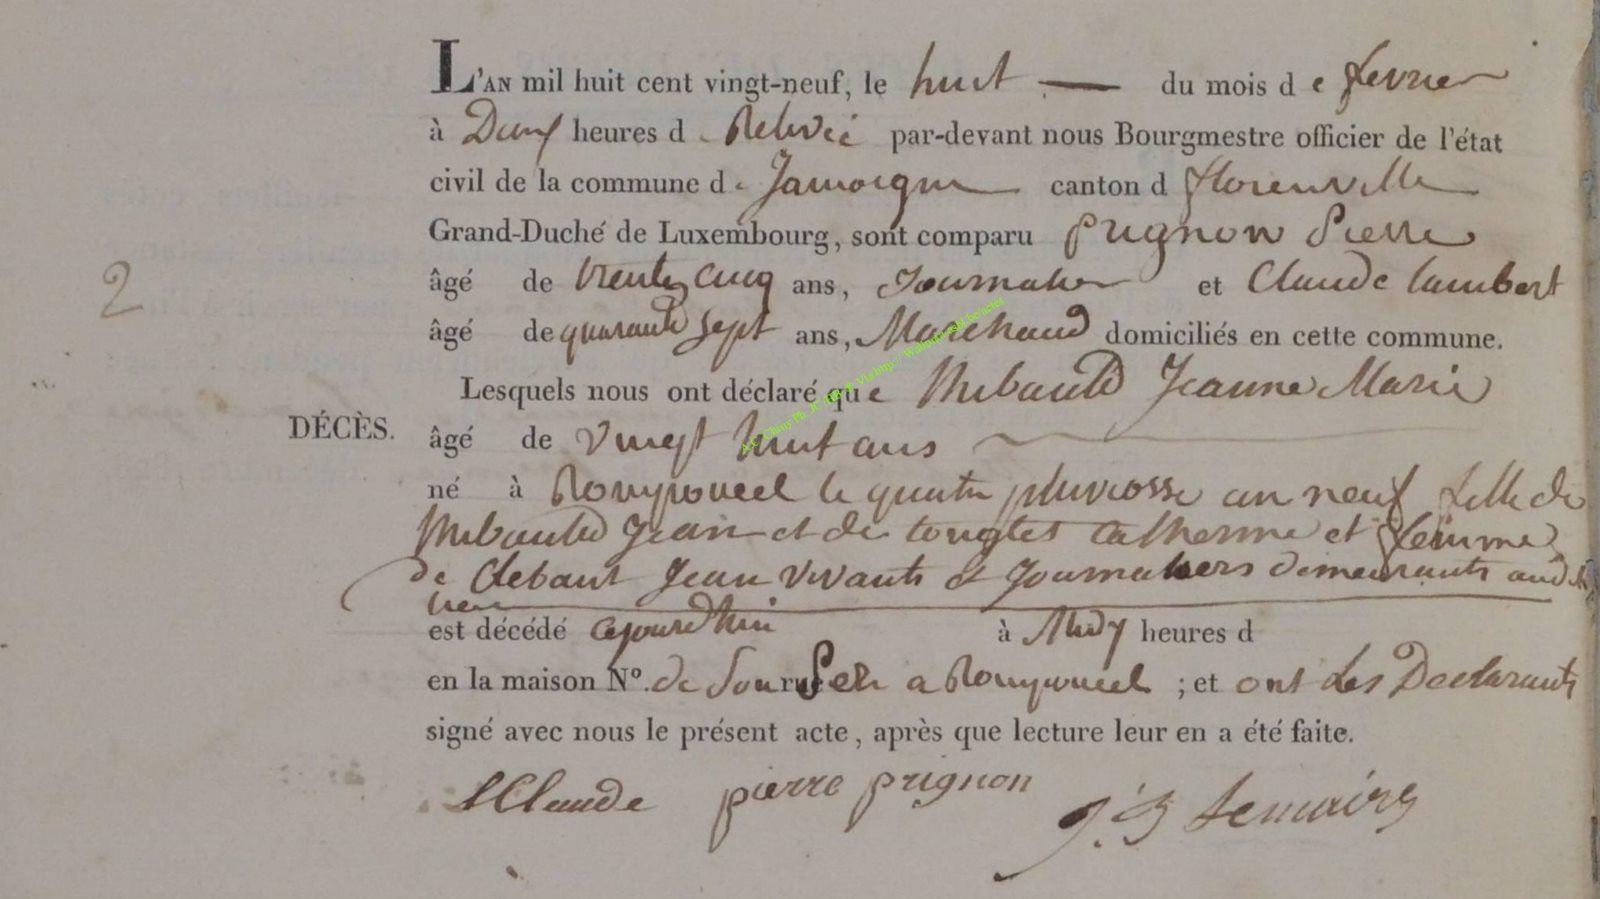 L'AN mil huit cent vingt-neuf, le huit — du mois d e fevrier
à Deux heures d e Relevée par-devant nous Bourgmestre officier de l'état
civil de la commune d e Jamoigne canton d florenville
Grand-Duché de Luxembourg, sont comparu prignon Pierre
âgé de trente cinq ans, Journalier et Claude lambert
2
âgé de quarante sept ans, Marchand domiciliés en cette commune.
Lesquels nous ont déclaré que thibault Jeanne Marie
DÉCÈS.
âgé de vingt huit ans
né à Romponcel le quatre pluviosse an neuf fille de
thibault Jean et de Catherine et femme
de Jean vivants et Journaliers demeurants audit
lieu
est décédé cejourd'hui à Midy heures d
en la maison N°. de Son rue Per a Romponcel ; et ont Les Declarants
signé avec nous le présent acte, après que lecture leur en a été faite.
LClaude pierre prignon J. B Lemaire